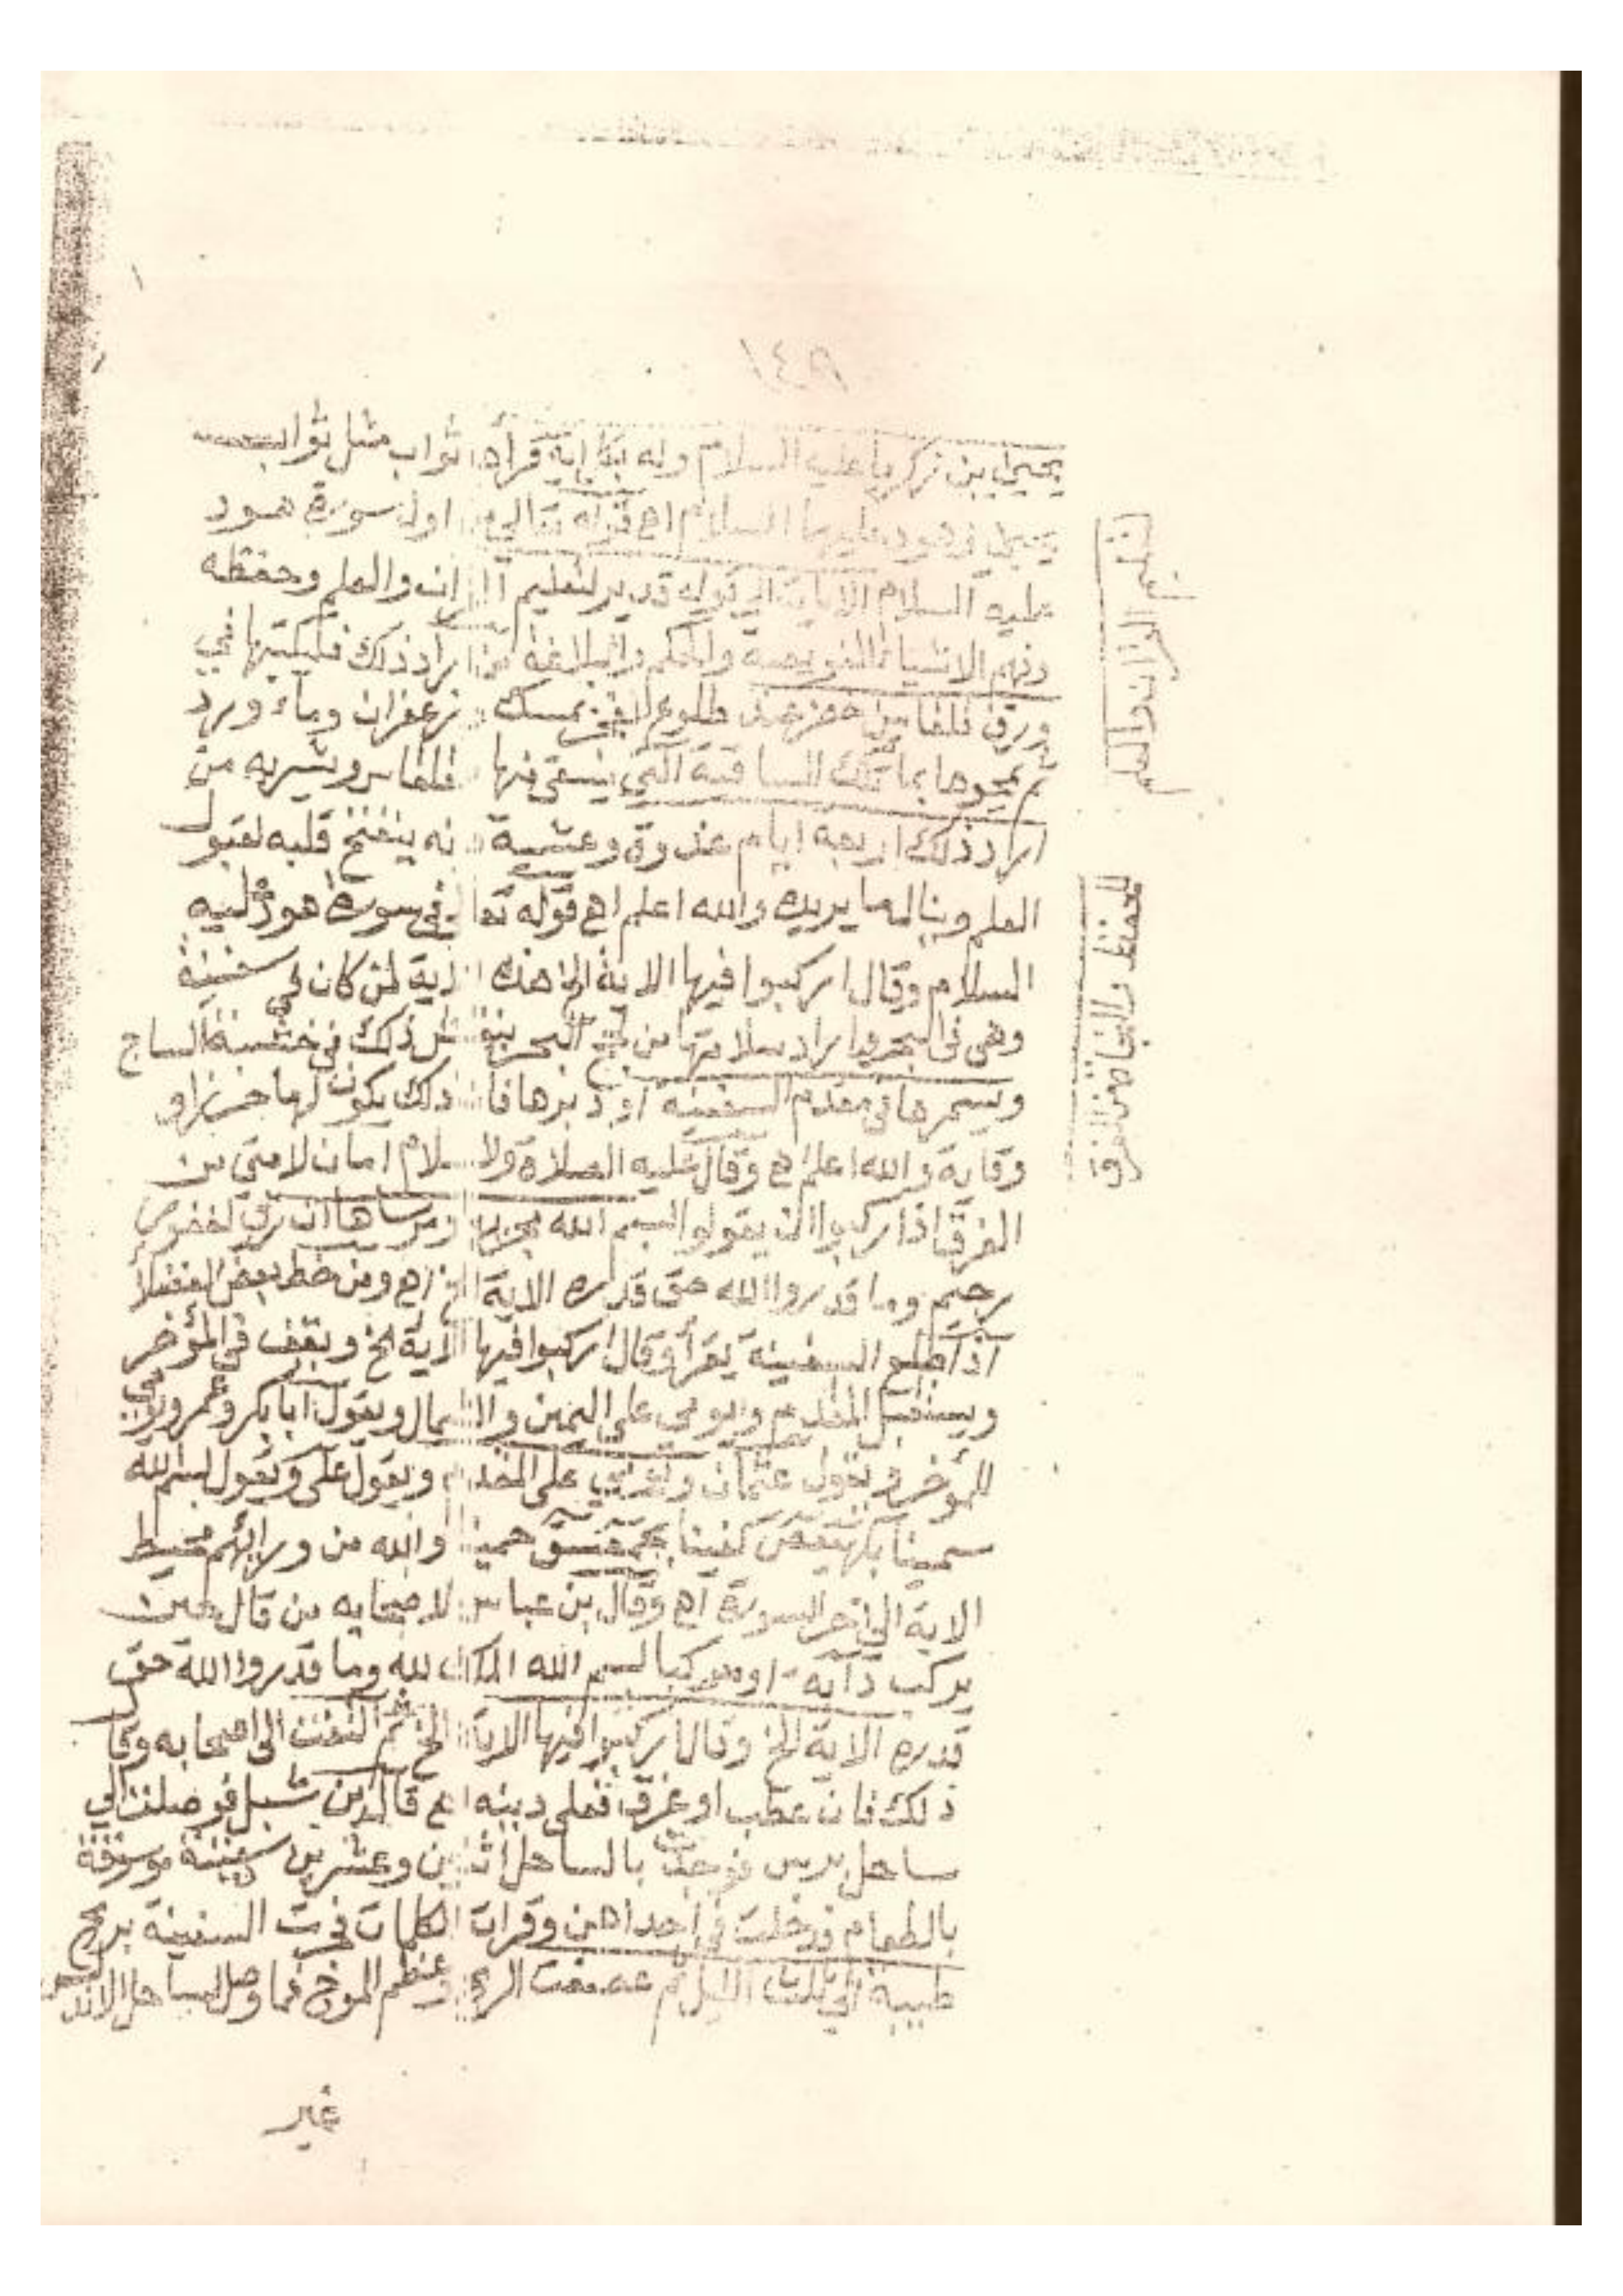 ١٤٨
يحيى بن زكريا عليه السلام وله بكل اية قرأها ثواب مثل ثواب
يحيى وهود عليهما السلام اه قوله تعالى اول سورة هود
عليه السلام الاية الى قوله قدير لتعليم القران والعلم وحفظه
وفهم الاشيا والحكم والبلاغة من اراد ذلك فليكتبها في
ورق قلقاس اخضر عند طلوع الفجر بمسك وزعفران وماء ورد
ثم يمحوها بماء تلك الساقية التي يسقى منها القلقاس ويشربه من
اراد ذلك اربعة ايام غدوة وعشية فانه ينفتح قلبه لقبول
العلم وينال ما يريده والله اعلم اه قوله تعالى في سورة هود عليه
السلام وقال اركبوا فيها الاية الخ هذه الاية لمن كان في سفينة
وهى فى البحر واراد سلامتها من البحر ينقش ذلك في خشبة الساج
ويسمرها في مقدم السفينه او دبرها فان ذلك يكون لها حرزا و
وقاية والله اعلم اه وقال عليه الصلاة ولاسلام امان لامتي من
الغرق اذا ركبوا ان يقولوا بسم الله مجراها ومرساها ان ربي لغفور
رحيم وما قدروا الله حق قدره الاية الخ اه ومن خط بعض الفضلا
اذا طلع السفينة يقرأ وقال اركبوا فيها الاية الخ ويقف في المؤخر
ويستقبل المقدم ويومي على اليمين والشمال ويقول ابا بكر وعمر ويومي
للمؤخر ويقول عثمان ويومي على المقدم ويقول على ويقول بسم الله
سمينا بكهيعص كفينا بحمعسق حمينا والله من ورائهم محيط
الاية الى اخر السورة اه وقال بن عباس لاصحابه من قال حين
يركب دابه او مركبا بسم الله الملك لله وما قدروا الله حق
قدره الاية الخ وقال اركبوا فيها الاية الخ ثم التفت الى اصحابه وقال
ذلك فان عطب او غرق فعلى ديته اه قال ابن شبل فوصلت الى
ساحل فوجدت بالساحل اثنين وعشرين سفينة موسقة
بالطعام فدخلت في احداهن وقرات الكلمات فجرت السفينة بريح
طيبة الى ثلث الليل ثم عصفت الريح وعظم الموج فما وصل لساحل الاندلس
غير
لتعليم القران والعلم
للحفظ والنجا من الغرق